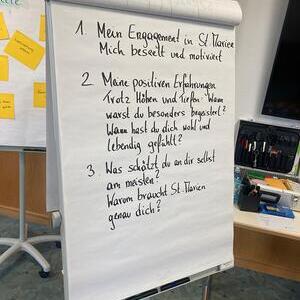 1. Mein Engagement in St. Marien
Mich beseelt und motiviert
2. Meine positiven Erfahrungen
Trotz Höhen und Tiefen: Wann
warst du besonders begeistert?
Wann hast du dich wohl und
lebendig gefühlt?
3. Was schätzt du an dir selbst
am meisten?
Warum braucht St. Marien
genau dich?